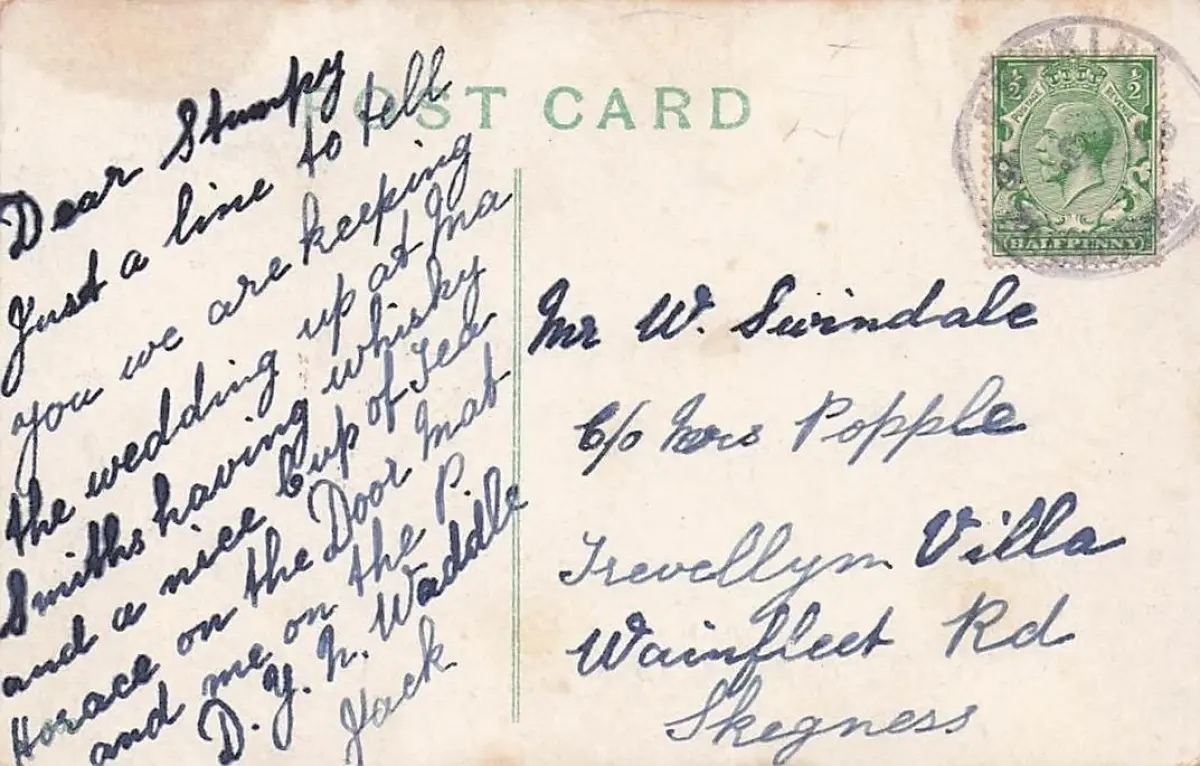 POST CARD
Dear Stumpy
Just a line to tell
you we are keeping
the wedding up at Ma
Smiths having whisky
and a nice Cup of Tea
Horace on the Door Mat
and me on the P.
D. Y. N. Waddle
Jack
½ ½
POSTAGE REVENUE
HALFPENNY
Mr W. Swindale
C/o Mrs Popple
Trevellyn Villa
Wainfleet Rd
Skegness